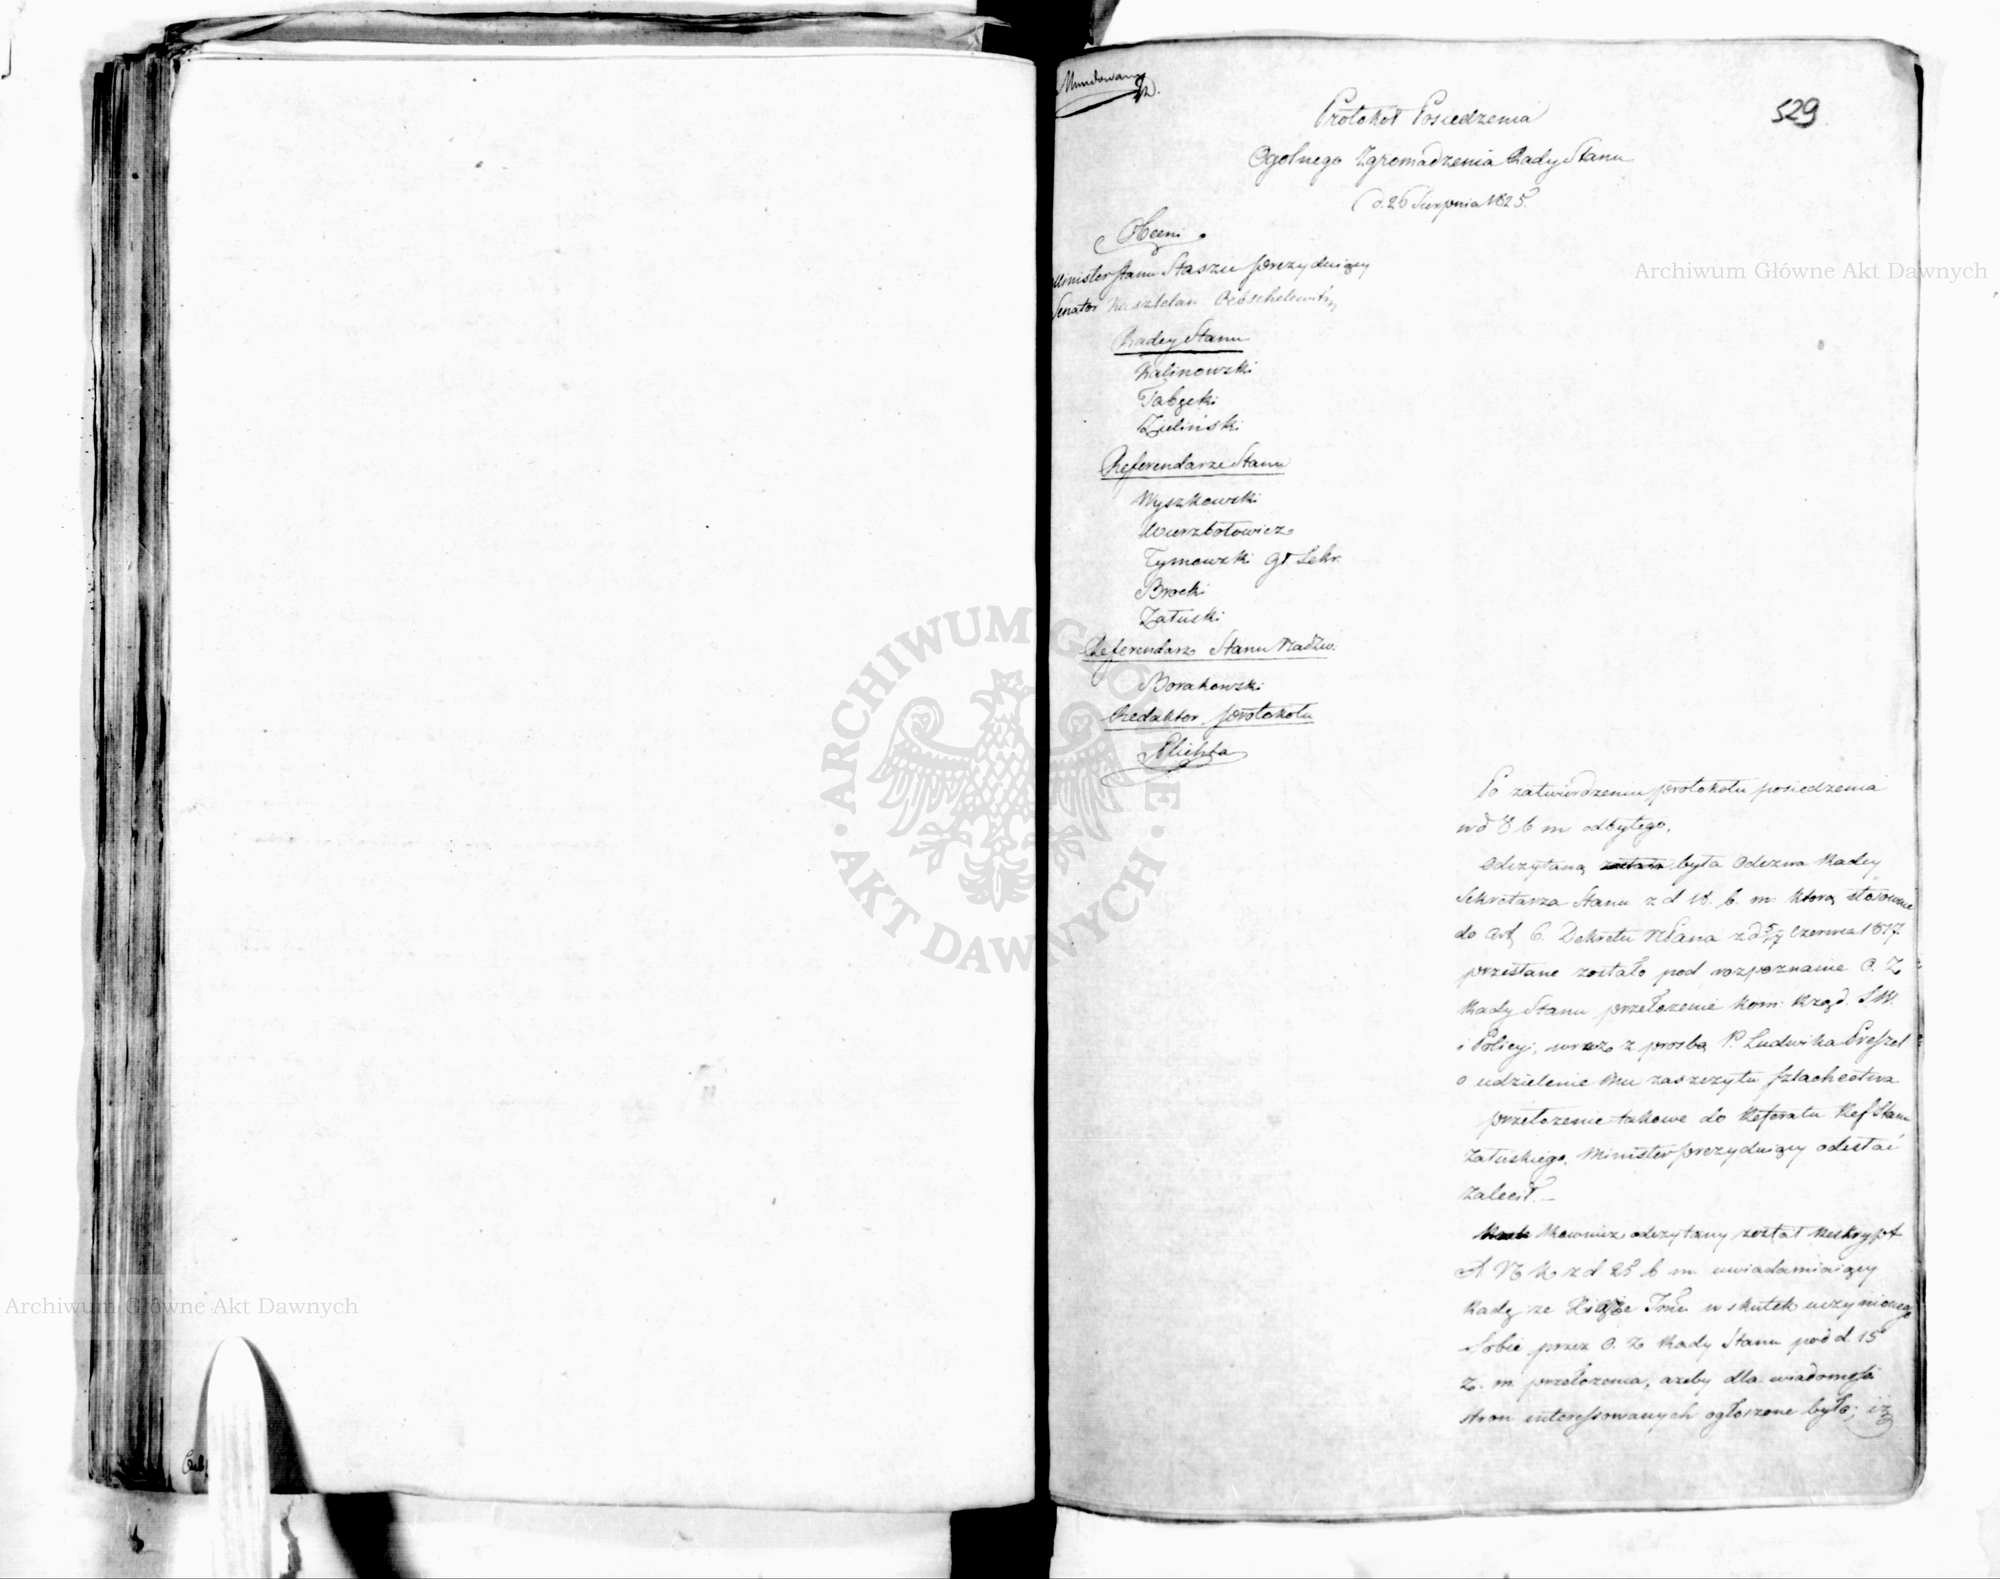 Mundowany
529
Protokół Posiedzenia
Ogolnego Zgromadzenia Rady Stanu
d. 26 Sierpnia 1825.
Obecni
Minister Stanu Staszic prezyduiący
Senator Kasztelan Oebschelewitz
Radcy Stanu
Kalinowski
Tabęcki
Zieliński
Referendarze Stanu
Wyszkowski
Wierzbołowicz
Tymowski gł Sekr.
Brocki
Załuski
Referendarz Stanu Nadzw:
Borakowski
Redaktor protokołu
Plichta
Po zatwierdzeniu protokołu posiedzenia
w d 8 b m odbytego,
Odczytaną była Odezwa Radcy
Sekretarza Stanu z d 18. b. m. ktorą stosownie
do Art 6. Dekretu NPana z d 5/7 Czerwca 1817
przesłane zostało pod rozpoznanie O. Z
Rady Stanu przełożenie Kom: Rząd. S.W.
i Policyi, wraz z prosbą P. Ludwika
o udzielenie Mu zaszczytu szlachectwa
przełożenie takowe do Referatu Ref Stanu
Załuskiego, Minister prezyduiący odesłać
zalecił. –
Rownież odczytany został Reskrypt
z d 25 b m. uwiadamiaiący
Radę ze Xiąże Jmć w skutek uczynionego
Sobie przez O. Z Rady Stanu pod d. 15
z. m. przełożenia, azeby dla wiadomości
stron interessowanych ogłoszone było; iż
Archiwum Główne Akt Dawnych
Archiwum Główne Akt Dawnych
ARCHIWUM GŁÓWNE · AKT DAWNYCH ·